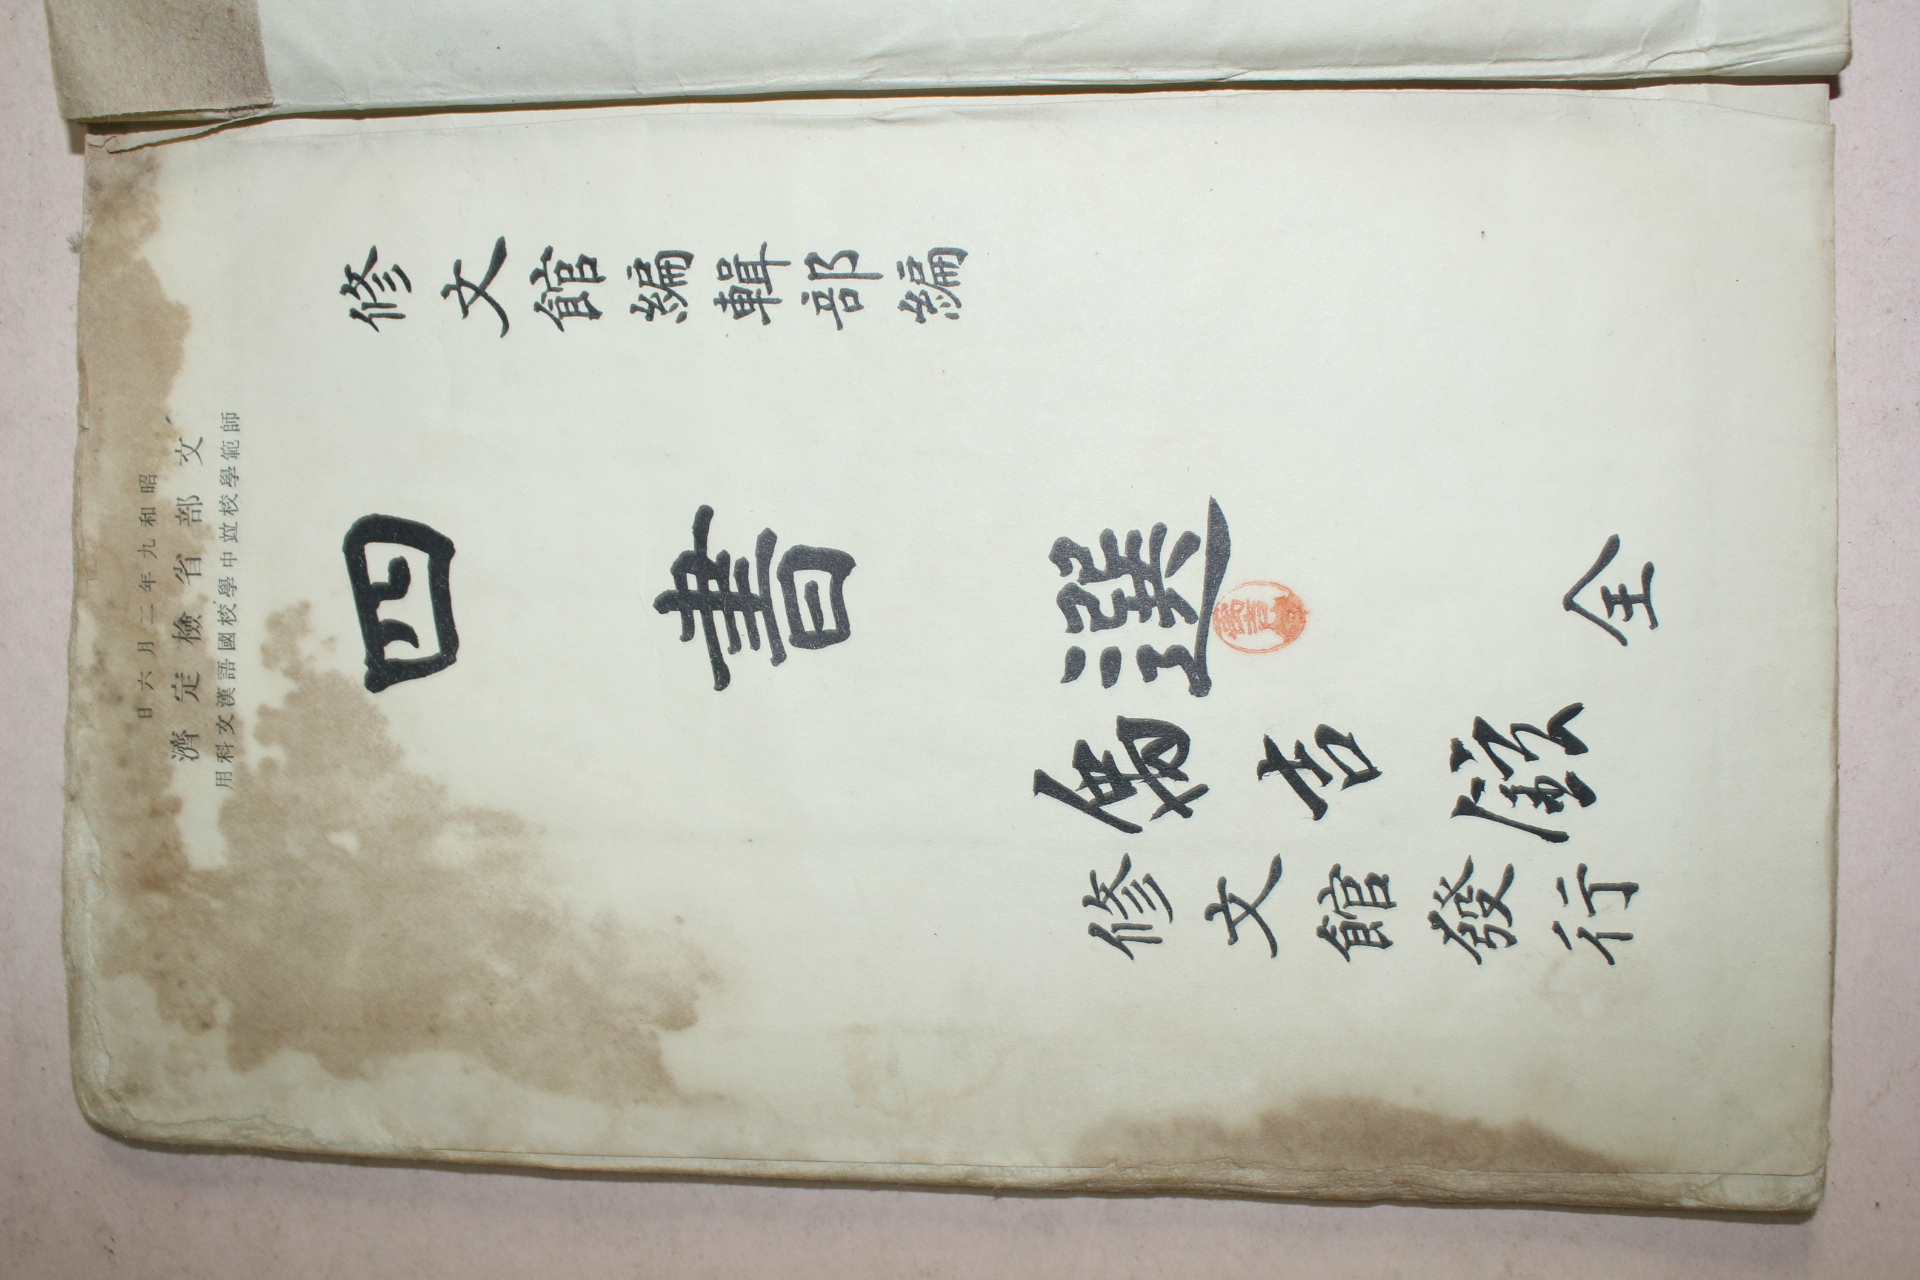 昭和九年二月六日
文部省檢定濟
師範學校中學校國語漢文科用
修文館編輯部編
四書選 全
吉
修文館發行